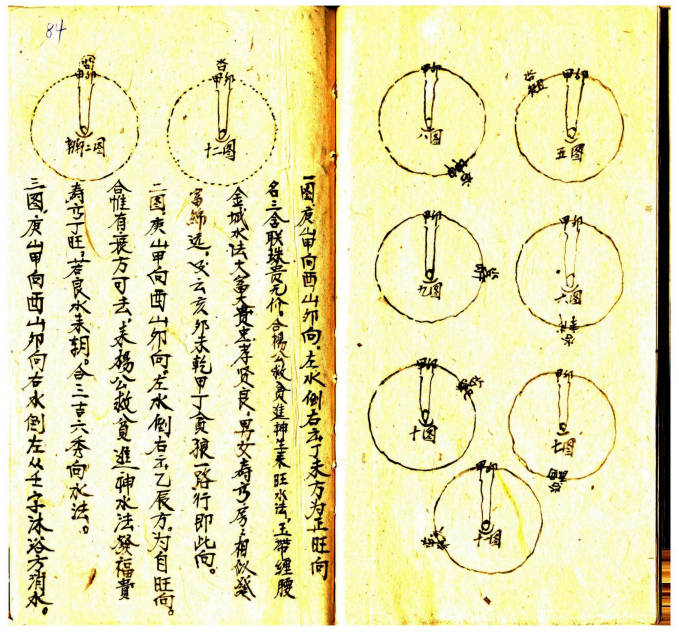 84
甲卯
五图
甲卯
八图
甲卯
六图
甲卯
九图
甲卯
七图
甲卯
十图
甲卯
甲卯
十二图
甲卯
二图
一图,庚山甲向酉山卯向,左水倒右去丁未方为正旺向
名三合联珠贵无价,合楊公救貧進神生来旺水法,玉带缠腰
金城水法大富大贵忠孝贤良,男女寿高房々相似發
富绵远。又云亥卯未乾甲丁貪狼一路行即此向。
二图,庚山甲向酉山卯向,左水倒右去乙辰方。为自旺向。
合惟有衰方可去,来楊公救貧進神水法發福貴
寿高丁旺,若艮水来朝。合三吉六秀向水法。
三图,庚山甲向酉山卯向右水倒左从壬字沐浴方消水。